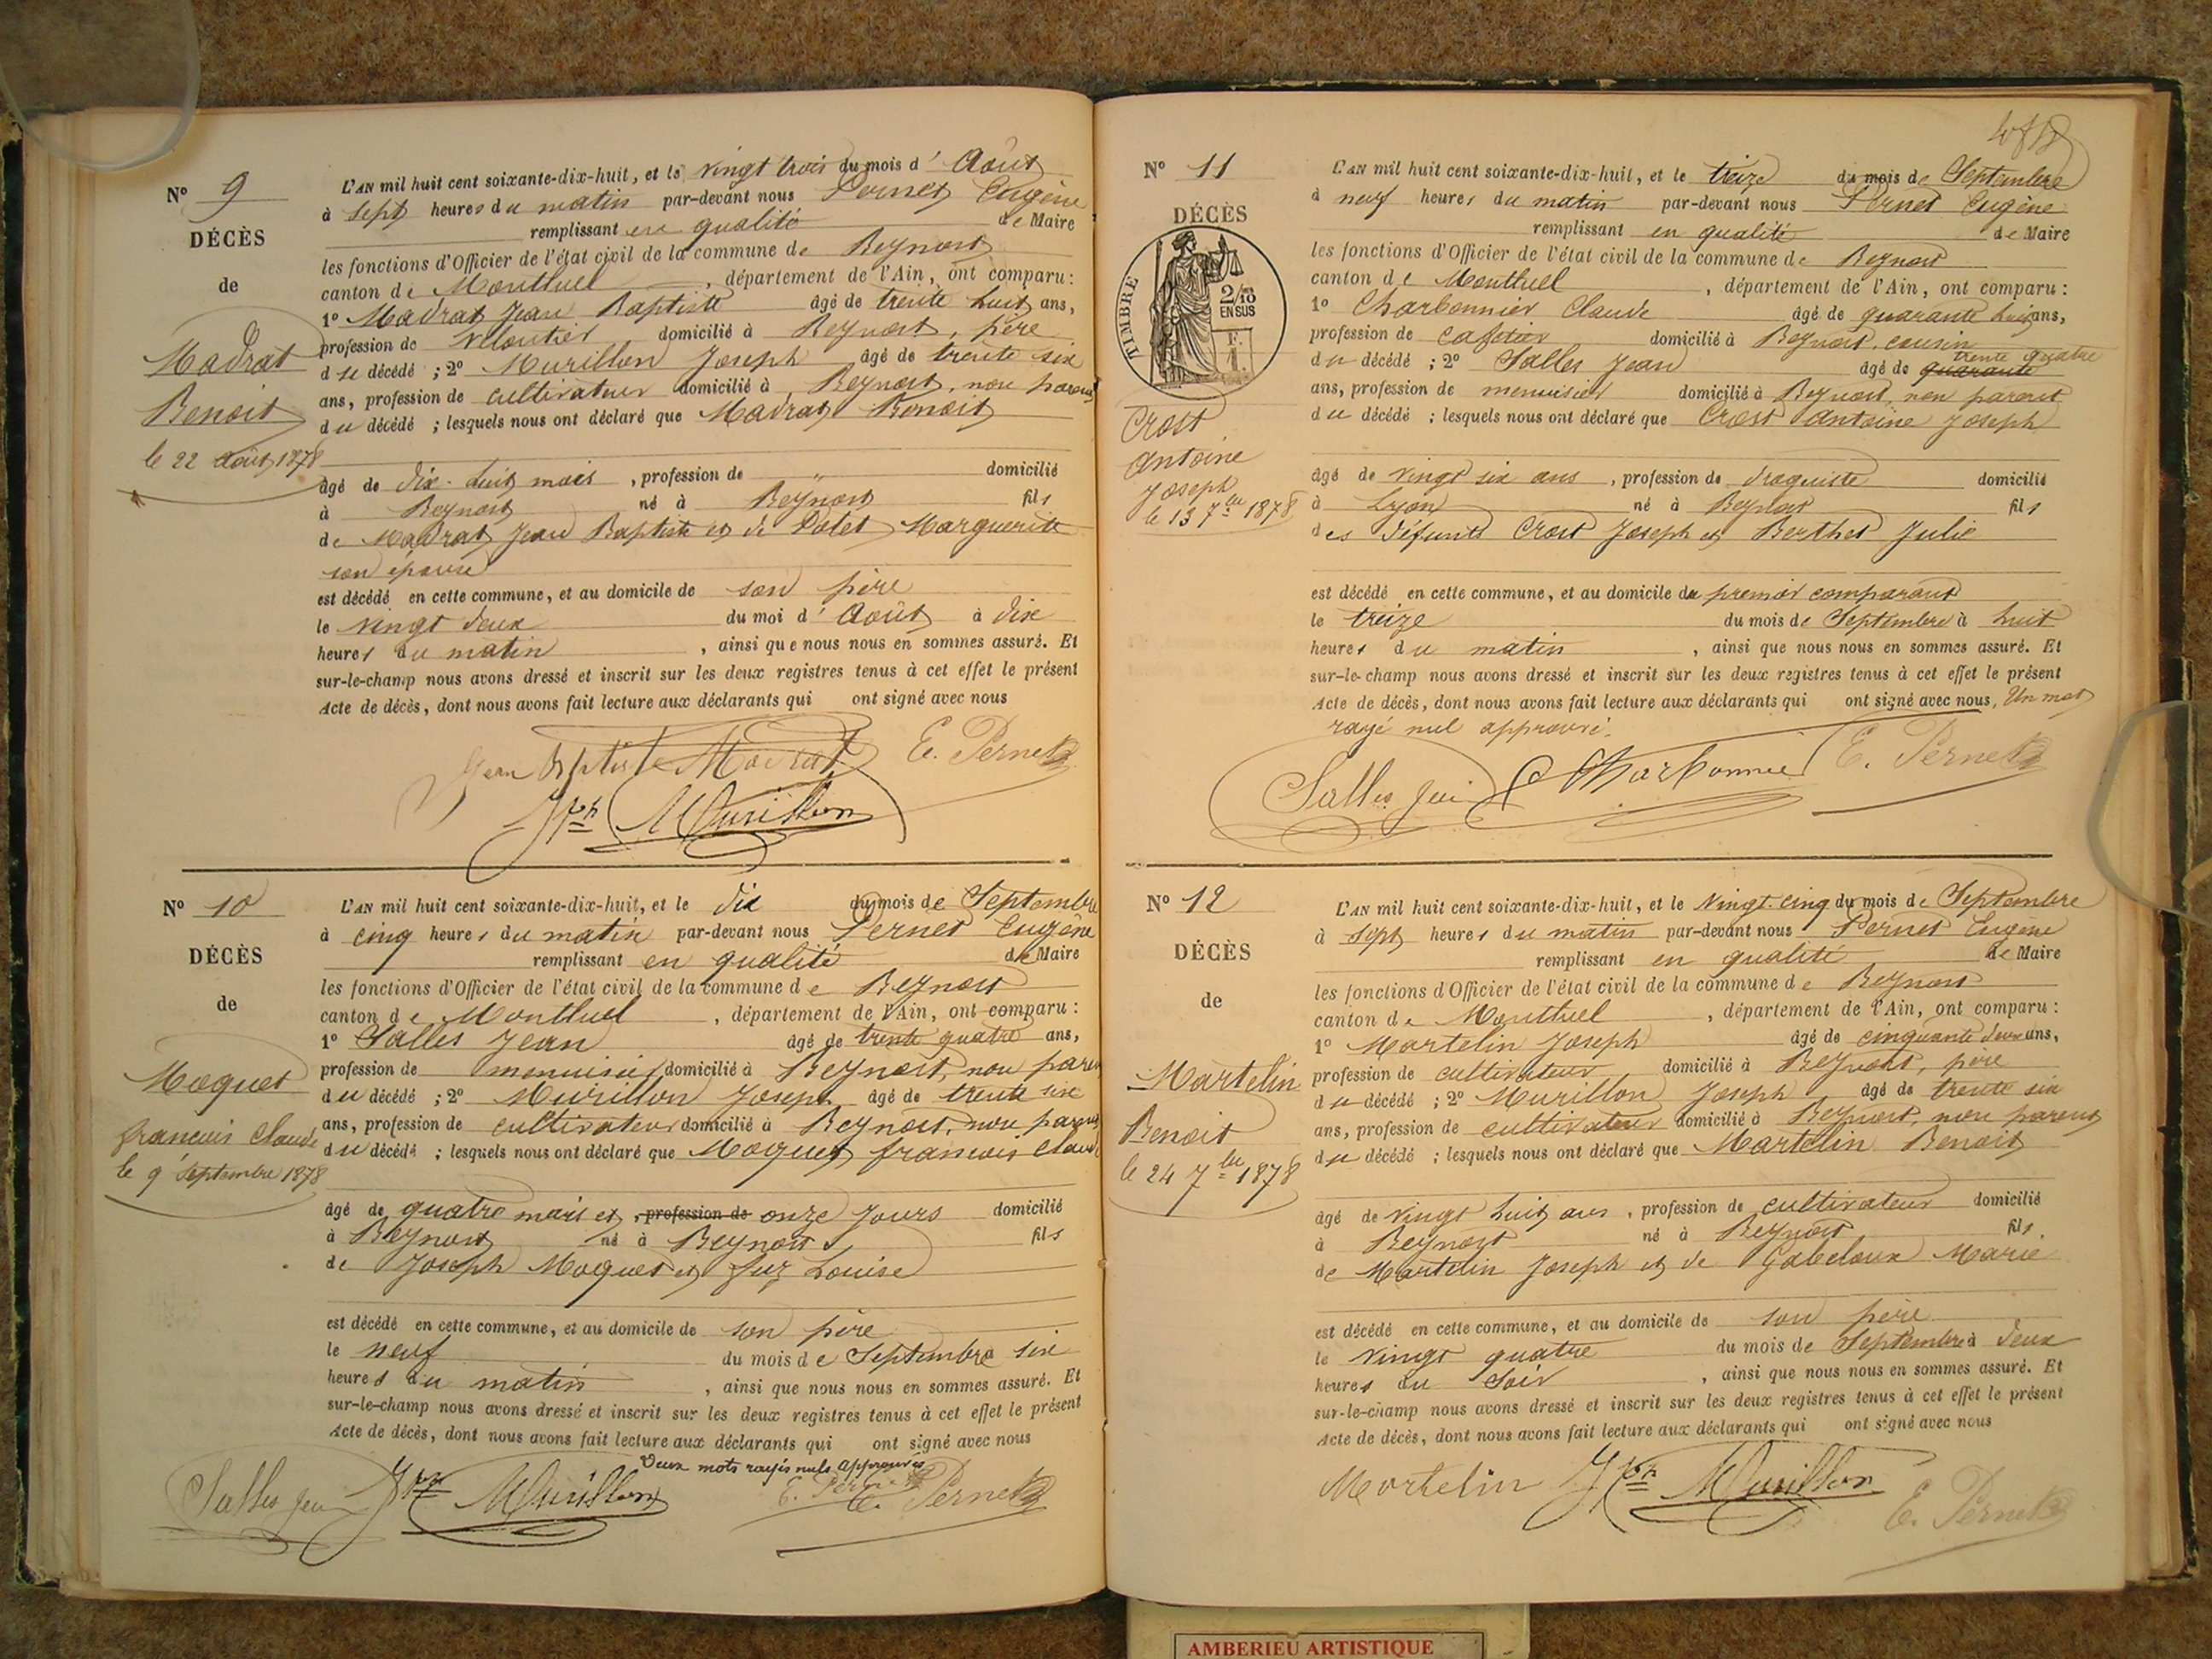 Nº 9
DÉCÈS
de
Madrat
Benoit
le 22 Août 1878
L'AN mil huit cent soixante-dix-huit, et le vingt trois du mois d' Août
à sept heures du matin par-devant nous Pernet Eugène
remplissant en qualité de Maire
les fonctions d'Officier de l'état civil de la commune de Beynost
canton de Montluel, département de l'Ain, ont comparu:
1º Madrat Jean Baptiste âgé de trente huit ans,
profession de veloutier domicilié à Beynost, père
du décédé ; 2º Murillon Joseph âgé de trente six
ans, profession de cultivateur domicilié à Beynost, non parent
du décédé ; lesquels nous ont déclaré que Madrat Benoit
âgé de dix-huit mois, profession de " domicilié
à Beynost né à Beynost fils
de Madrat Jean Baptiste et de Polet Marguerite
son épouse
est décédé en cette commune, et au domicile de son père
le vingt deux du moi d' Août à dix
heures du matin, ainsi que nous nous en sommes assuré. Et
sur-le-champ nous avons dressé et inscrit sur les deux registres tenus à cet effet le présent
Acte de décès, dont nous avons fait lecture aux déclarants qui ont signé avec nous
Jean Bptiste Madrat E. Pernet
Jph Murillon
Nº 10
DÉCÈS
de
Moquet
françois Claude
le 9 Septembre 1878
L'AN mil huit cent soixante-dix-huit, et le dix du mois de Septembre
à cinq heures du matin par-devant nous Pernet Eugène
remplissant en qualité de Maire
les fonctions d'Officier de l'état civil de la commune de Beynost
canton de Montluel, département de l'Ain, ont comparu :
1º Salles Jean âgé de trente quatre ans,
profession de menuisier domicilié à Beynost, non paren
du décédé ; 2º Murillon Joseph âgé de trente six
ans, profession de cultivateur domicilié à Beynost, non parent
du décédé ; lesquels nous ont déclaré que Moquet françois Claude
âgé de quatre mois et , profession de onze jours domicilié
à Beynost né à Beynost fils
de Joseph Moquet et Louise
est décédé en cette commune, et au domicile de son père
le neuf du mois de Septembre à six
heures du matin, ainsi que nous nous en sommes assuré. Et
sur-le-champ nous avons dressé et inscrit sur les deux registres tenus à cet effet le présent
Acte de décès, dont nous avons fait lecture aux déclarants qui ont signé avec nous
Deux mots rayés nuls approuvés
E. Pernet
Salles Jean Jph Murillon E. Pernet
Nº 11
DÉCÈS
TIMBRE
2/10
EN SUS
F.
Crost
Antoine
Joseph
le 13 7bre 1878
L'AN mil huit cent soixante-dix-huit, et le treize du mois de Septembre
à neuf heures du matin par-devant nous Pernet Eugène
remplissant en qualité de Maire
les fonctions d'Officier de l'état civil de la commune de Beynost
canton de Montluel, département de l'Ain, ont comparu :
1º Charbonnier Claude âgé de quarante huit ans,
profession de cafetier domicilié à Beynost, cousin
trente quatre
du décédé ; 2º Salles Jean âgé de quarante
ans, profession de menuisier domicilié à Beynost, non parent
du décédé ; lesquels nous ont déclaré que Crost Antoine Joseph
âgé de vingt six ans, profession de droguiste domicilié
à Lyon né à Beynost fils
des défunts Crost Joseph et Berthet Julie
est décédé en cette commune, et au domicile du premier comparant
le treize du mois de Septembre à huit
heures du matin, ainsi que nous nous en sommes assuré. Et
sur-le-champ nous avons dressé et inscrit sur les deux registres tenus à cet effet le présent
Acte de décès, dont nous avons fait lecture aux déclarants qui ont signé avec nous, Un mot
rayé nul approuvé.
Salles Jean C Charbonnier E. Pernet
Nº 12
DÉCÈS
de
Martelin
Benoit
le 24 7bre 1878
L'AN mil huit cent soixante-dix-huit, et le vingt-cinq du mois de Septembre
à sept heures du matin par-devant nous Pernet Eugène
remplissant en qualité de Maire
les fonctions d'Officier de l'état civil de la commune de Beynost
canton de Montluel, département de l'Ain, ont comparu :
1º Martelin Joseph âgé de cinquante deux ans,
profession de cultivateur domicilié à Beynost, père
du décédé ; 2º Murillon Joseph âgé de trente six
ans, profession de cultivateur domicilié à Beynost, non parent
du décédé ; lesquels nous ont déclaré que Martelin Benoit
âgé de vingt huit ans, profession de cultivateur domicilié
à Beynost né à Beynost fils
de Martelin Joseph et de Gabeloux Marie
est décédé en cette commune, et au domicile de son père
le vingt quatre du mois de Septembre à deux
heures du soir, ainsi que nous nous en sommes assuré. Et
sur-le-champ nous avons dressé et inscrit sur les deux registres tenus à cet effet le présent
Acte de décès, dont nous avons fait lecture aux déclarants qui ont signé avec nous
Martelin Jph Murillon E. Pernet
AMBERIEU ARTISTIQUE